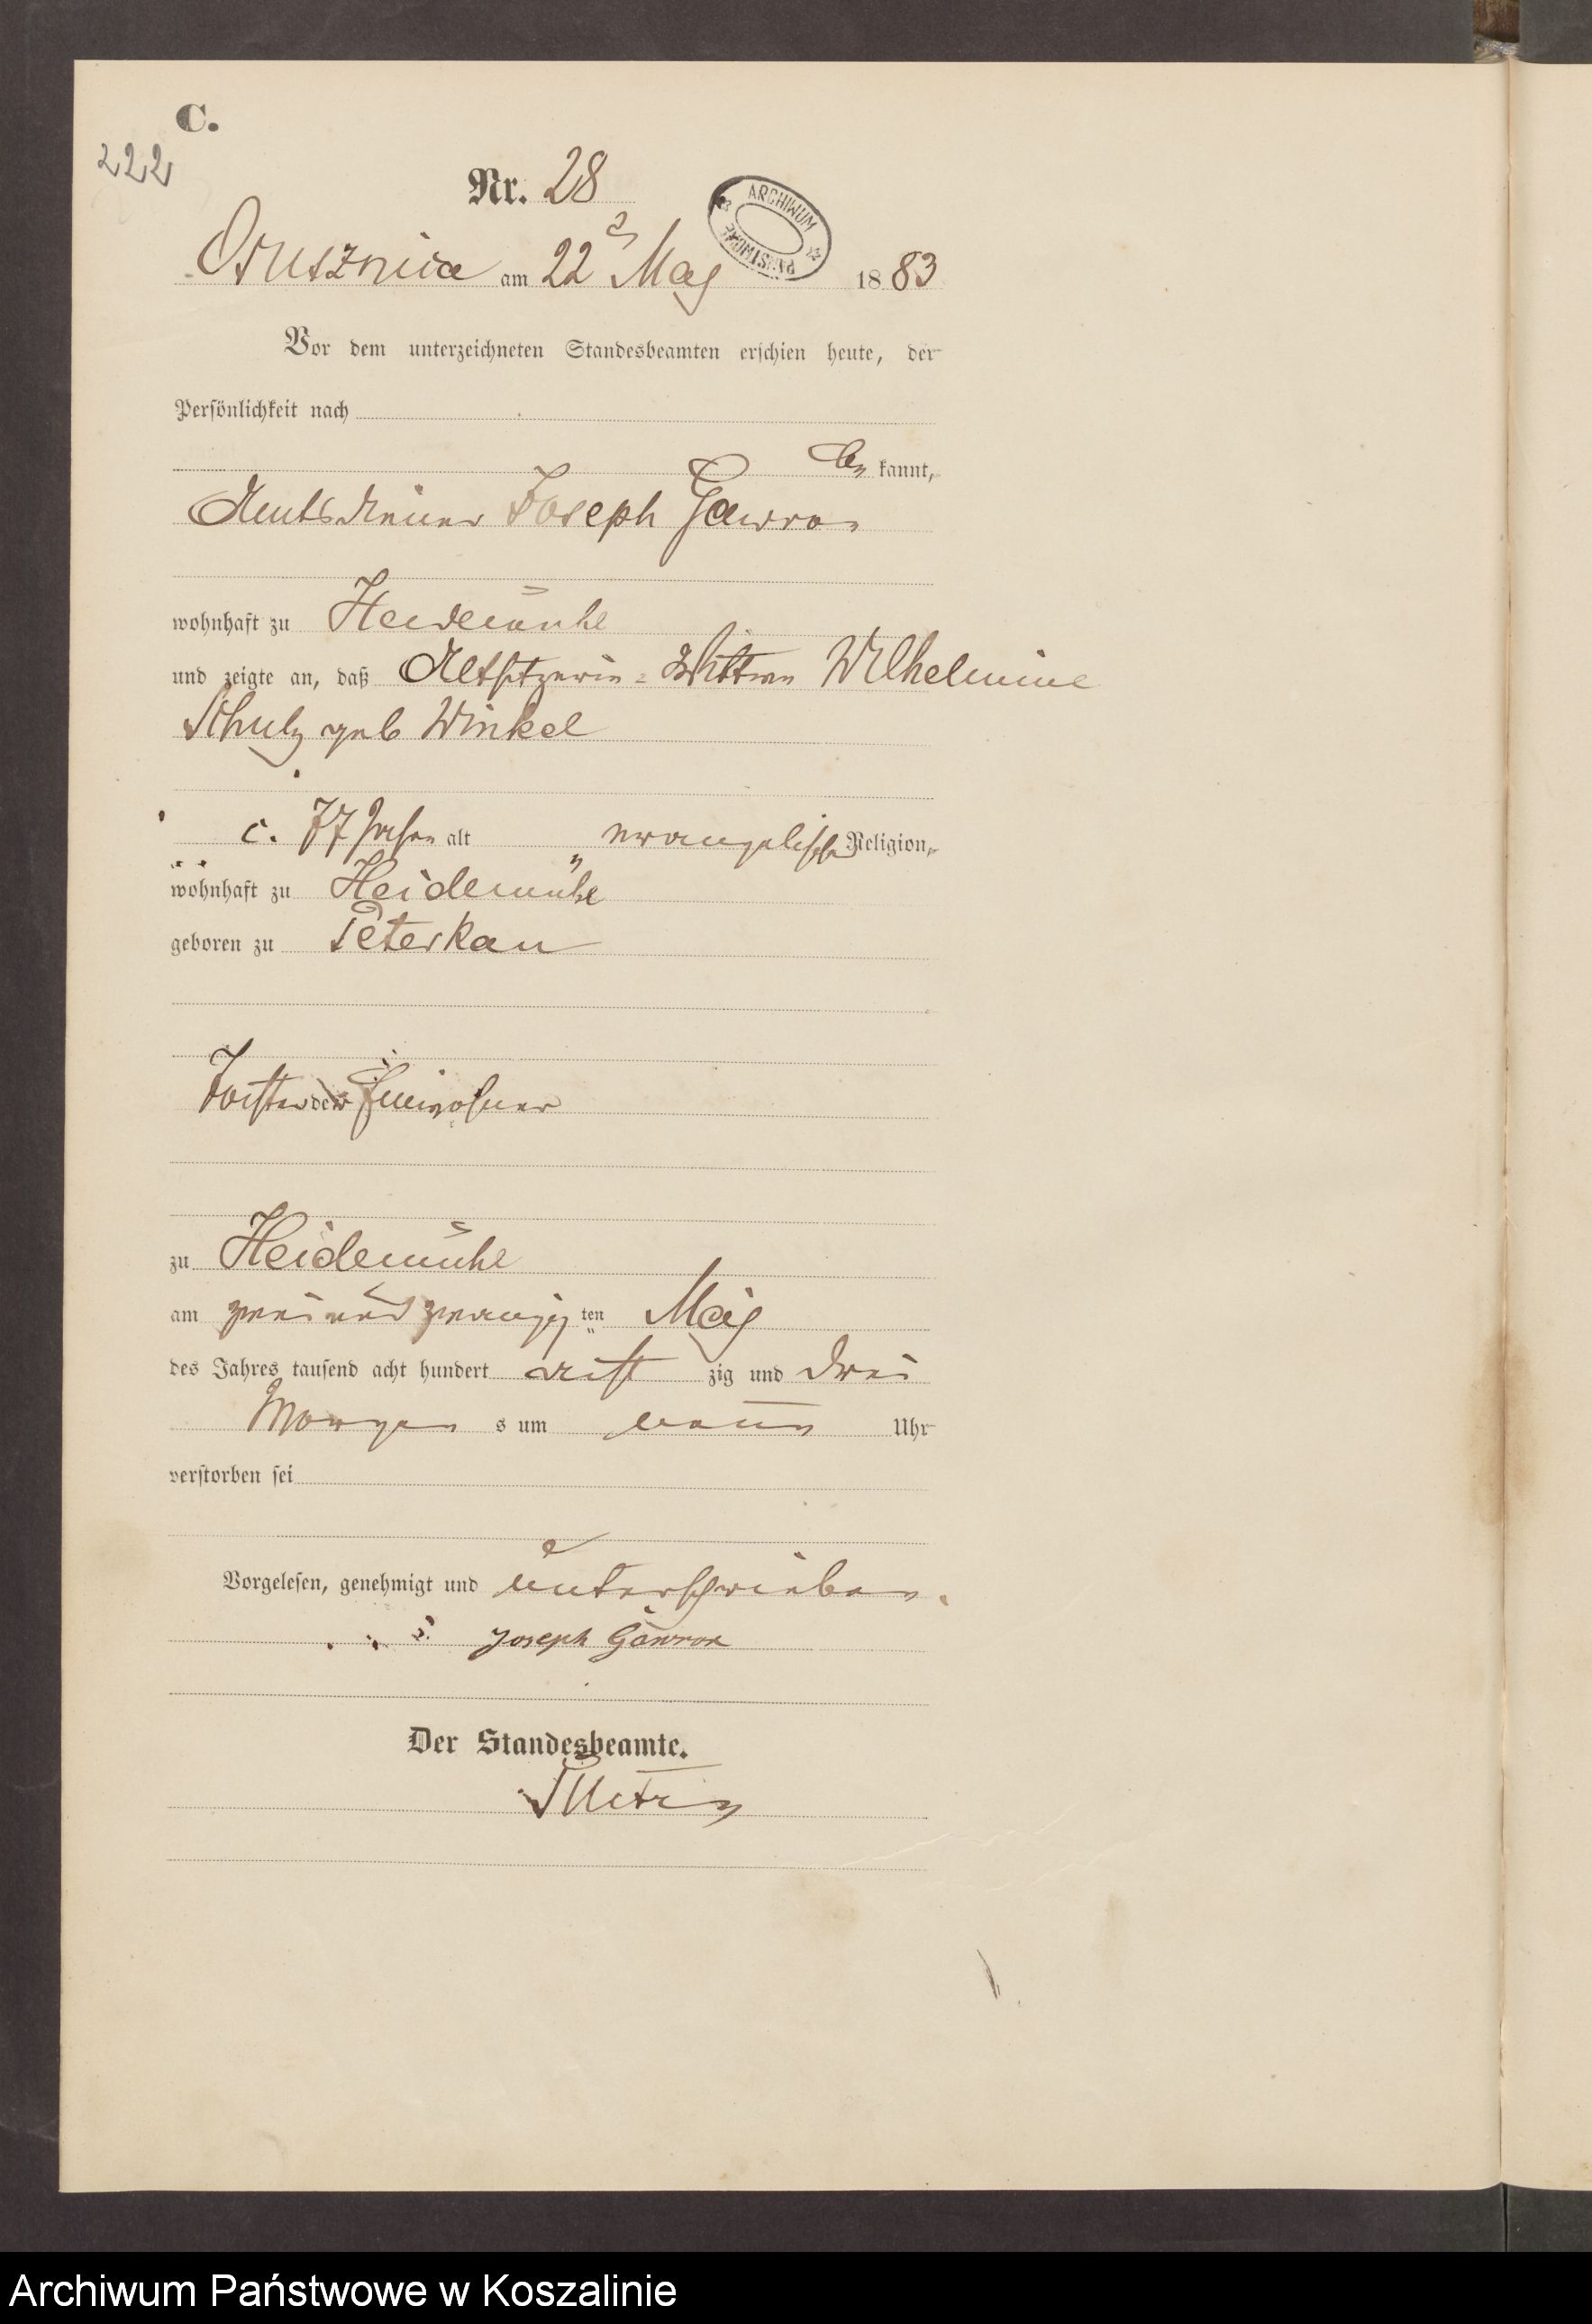 C.
222
Nr. 28
ARCHIWUM PAŃSTWOWE
Ostusznica am 22 May 1883
Vor dem unterzeichneten Standesbeamten erschien heute, der
Persönlichkeit nach
be kannt,
Amtsdiener Joseph Gawron
wohnhaft zu Heidemühl
und zeigte an, daß Altsitzerin-Wittwe Wilhelmine
Schulz geb Winkel
c. 77 Jahre alt evangelischer Religion,
wohnhaft zu Heidemühl
geboren zu Peterkau
der
zu Heidemühl
am zwei und zwanzig ten May
des Jahres tausend acht hundert acht zig und drei
Morgen s um neun Uhr
verstorben sei
Vorgelesen, genehmigt und unterschrieben
Joseph Gawron
Der Standesbeamte.
Archiwum Państwowe w Koszalinie